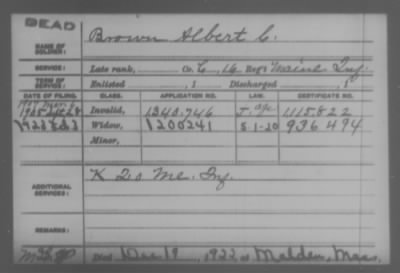 DEAD
NAME OF SOLDIER: Brown Albert C.
SERVICE: Late rank, Co. C, 16 Reg't Maine Inf.
TERM OF SERVICE: Enlisted , 1 Discharged , 1
DATE OF FILING. CLASS. APPLICATION NO. LAW. CERTIFICATE NO.
Invalid, 1340.746 1115.822
Widow, 1200241 S. 1-20 936494
Minor,
ADDITIONAL SERVICES: K 20 Me. Inf.
REMARKS:
Died Dec 19, 1922 at Malden, Mass,